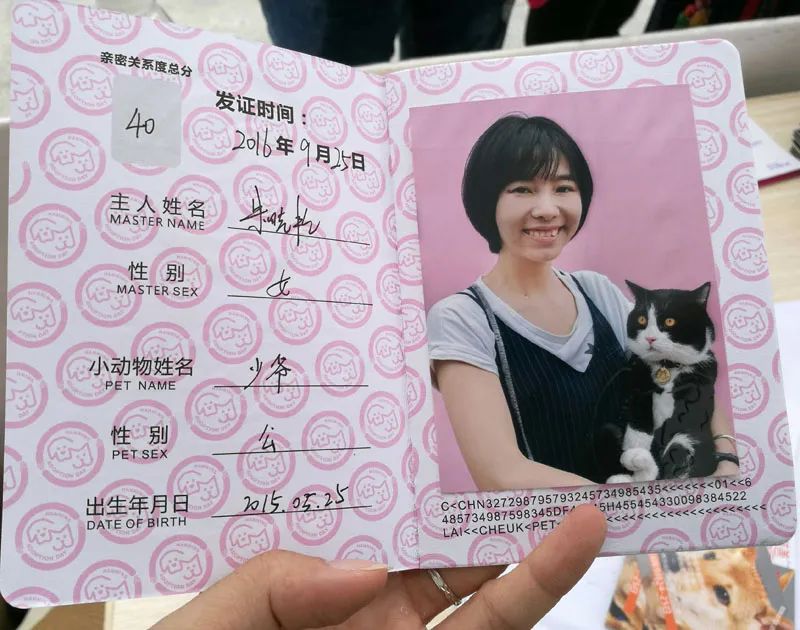 亲密关系度总分
40
发证时间：
2016年9月25日
主人姓名
MASTER NAME
朱晓
性 别
MASTER SEX
女
小动物姓名
PET NAME
少爷
性 别
PET SEX
公
出生年月日
DATE OF BIRTH
2015.05.25
C<CHN327298795793245734985435<<<<<<<01<<6
485734987598345DFA 5H455454330098384522
LAI<<CHEUK<PET<<<<<<<<<<<<<<<<<<<<<
ADOPTION DAY